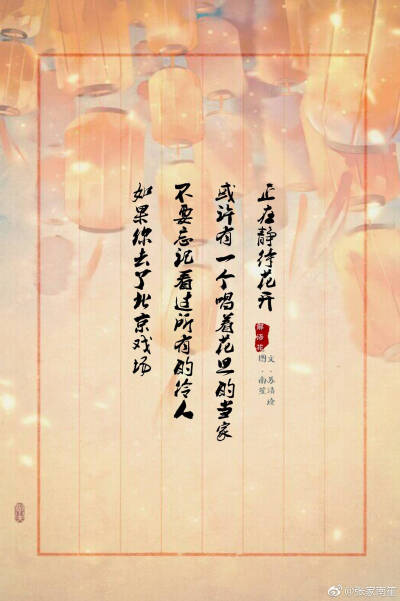 如果你去了北京戏场
不要忘记看过所有的伶人
或许有一个唱着花旦的当家
正在静待花开
解语花
文·苏
图·南笙
@张家南笙